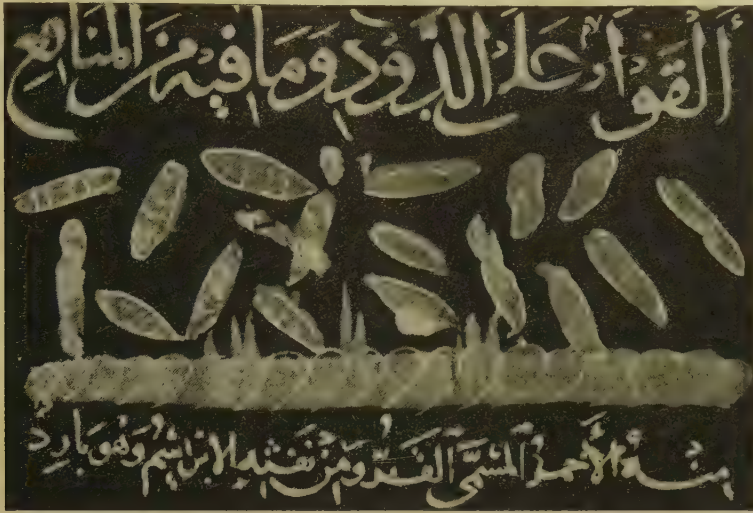 ألقوا على الدود وما فيه من المنافع
منه الأحمر المسمى القد ومن نفثه الابريسم وهو بارد